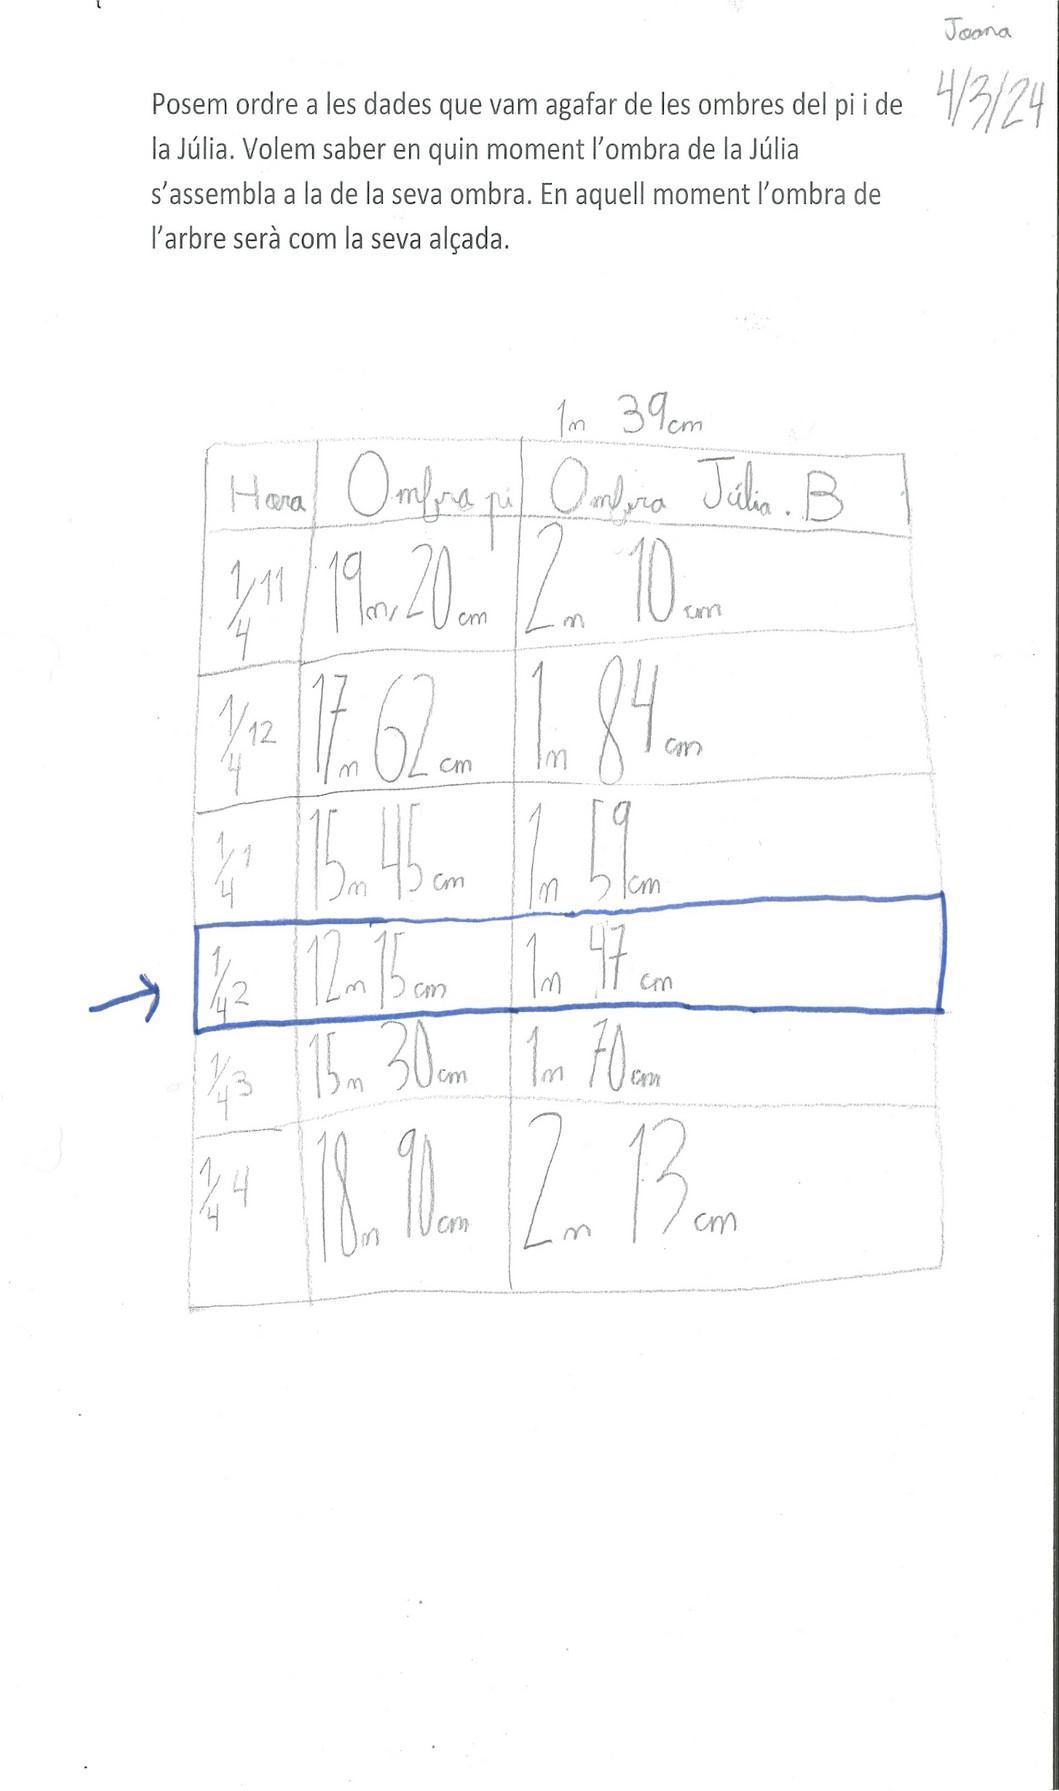 Joana
4/3/24
Posem ordre a les dades que vam agafar de les ombres del pi i de
la Júlia. Volem saber en quin moment l’ombra de la Júlia
s’assembla a la de la seva ombra. En aquell moment l’ombra de
l’arbre serà com la seva alçada.
1m 39cm
Hora Ombra pi Ombra Júlia. B
1/4 11 19m, 20cm 2m 10cm
1/4 12 17m 62cm 1m 84cm
1/4 1 15m 45cm 1m 59cm
1/4 2 12m 15cm 1m 47cm
1/4 3 15m 30cm 1m 70cm
1/4 4 18m 90cm 2m 13cm